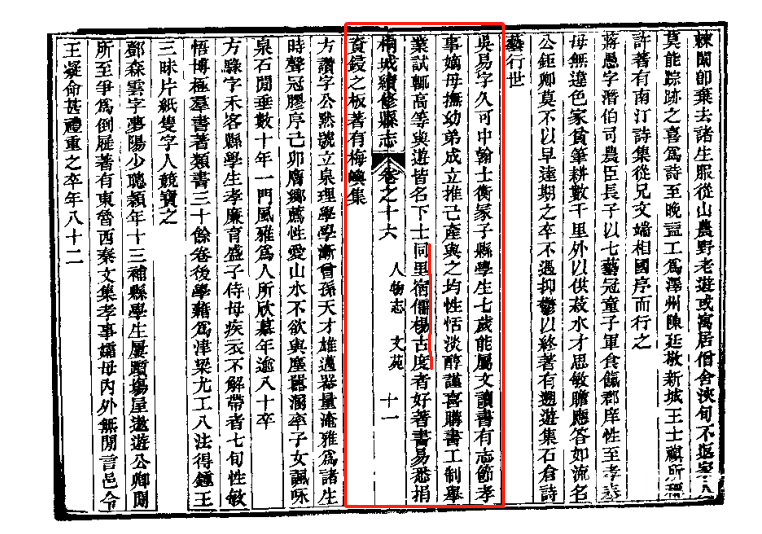 棘闈即棄去諸生服從山農野老遊或寓居僧舍浹旬不返家人
莫能踪跡之喜爲詩至晚益工爲澤州陳廷敬新城王士禛所稱
許著有南汀詩集從兄文端相國序而行之
蔣愚字潛伯司農臣長子以七藝冠童子軍食餼郡庠性至孝奉
母無違色家貧筆耕數千里外以供菽水才思敏贍應答如流名
公鉅卿莫不以早達期之卒不遇抑鬱以終著有遯遊集石倉詩
藝行世
吳易字久可中翰士衡冢子縣學生七歲能屬文讀書有志節孝
事嫡母撫幼弟成立推己產與之均性恬淡醇謹喜購書工制舉
業試輒高等與遊皆名下士同里宿儒楊古度者好著書易悉捐
桐城續修縣志 卷之十六 人物志 文苑 十一
資鏡之板著有梅嶼集
方讚字公黙號立泉理學學漸曾孫天才雄邁器量淹雅爲諸生
時聲冠膠序己卯膺鄉薦性愛山水不欲與塵囂溷卒子女諷咏
泉石閒垂數十年一門風雅爲人所欣慕年逾八十卒
方縣字禾客縣學生孝廉育盛子侍母疾衣不解帶者七旬性敏
悟博極羣書著類書三十餘卷後學藉爲津梁尤工八法得鍾王
三昧片紙隻字人競寶之
鄧森雲字夢陽少聰穎年十三補縣學生屢躓塲屋遨遊公卿閒
所至爭爲倒屣著有東魯西秦文集孝事孀母內外無閒言邑令
王凝命甚禮重之卒年八十二